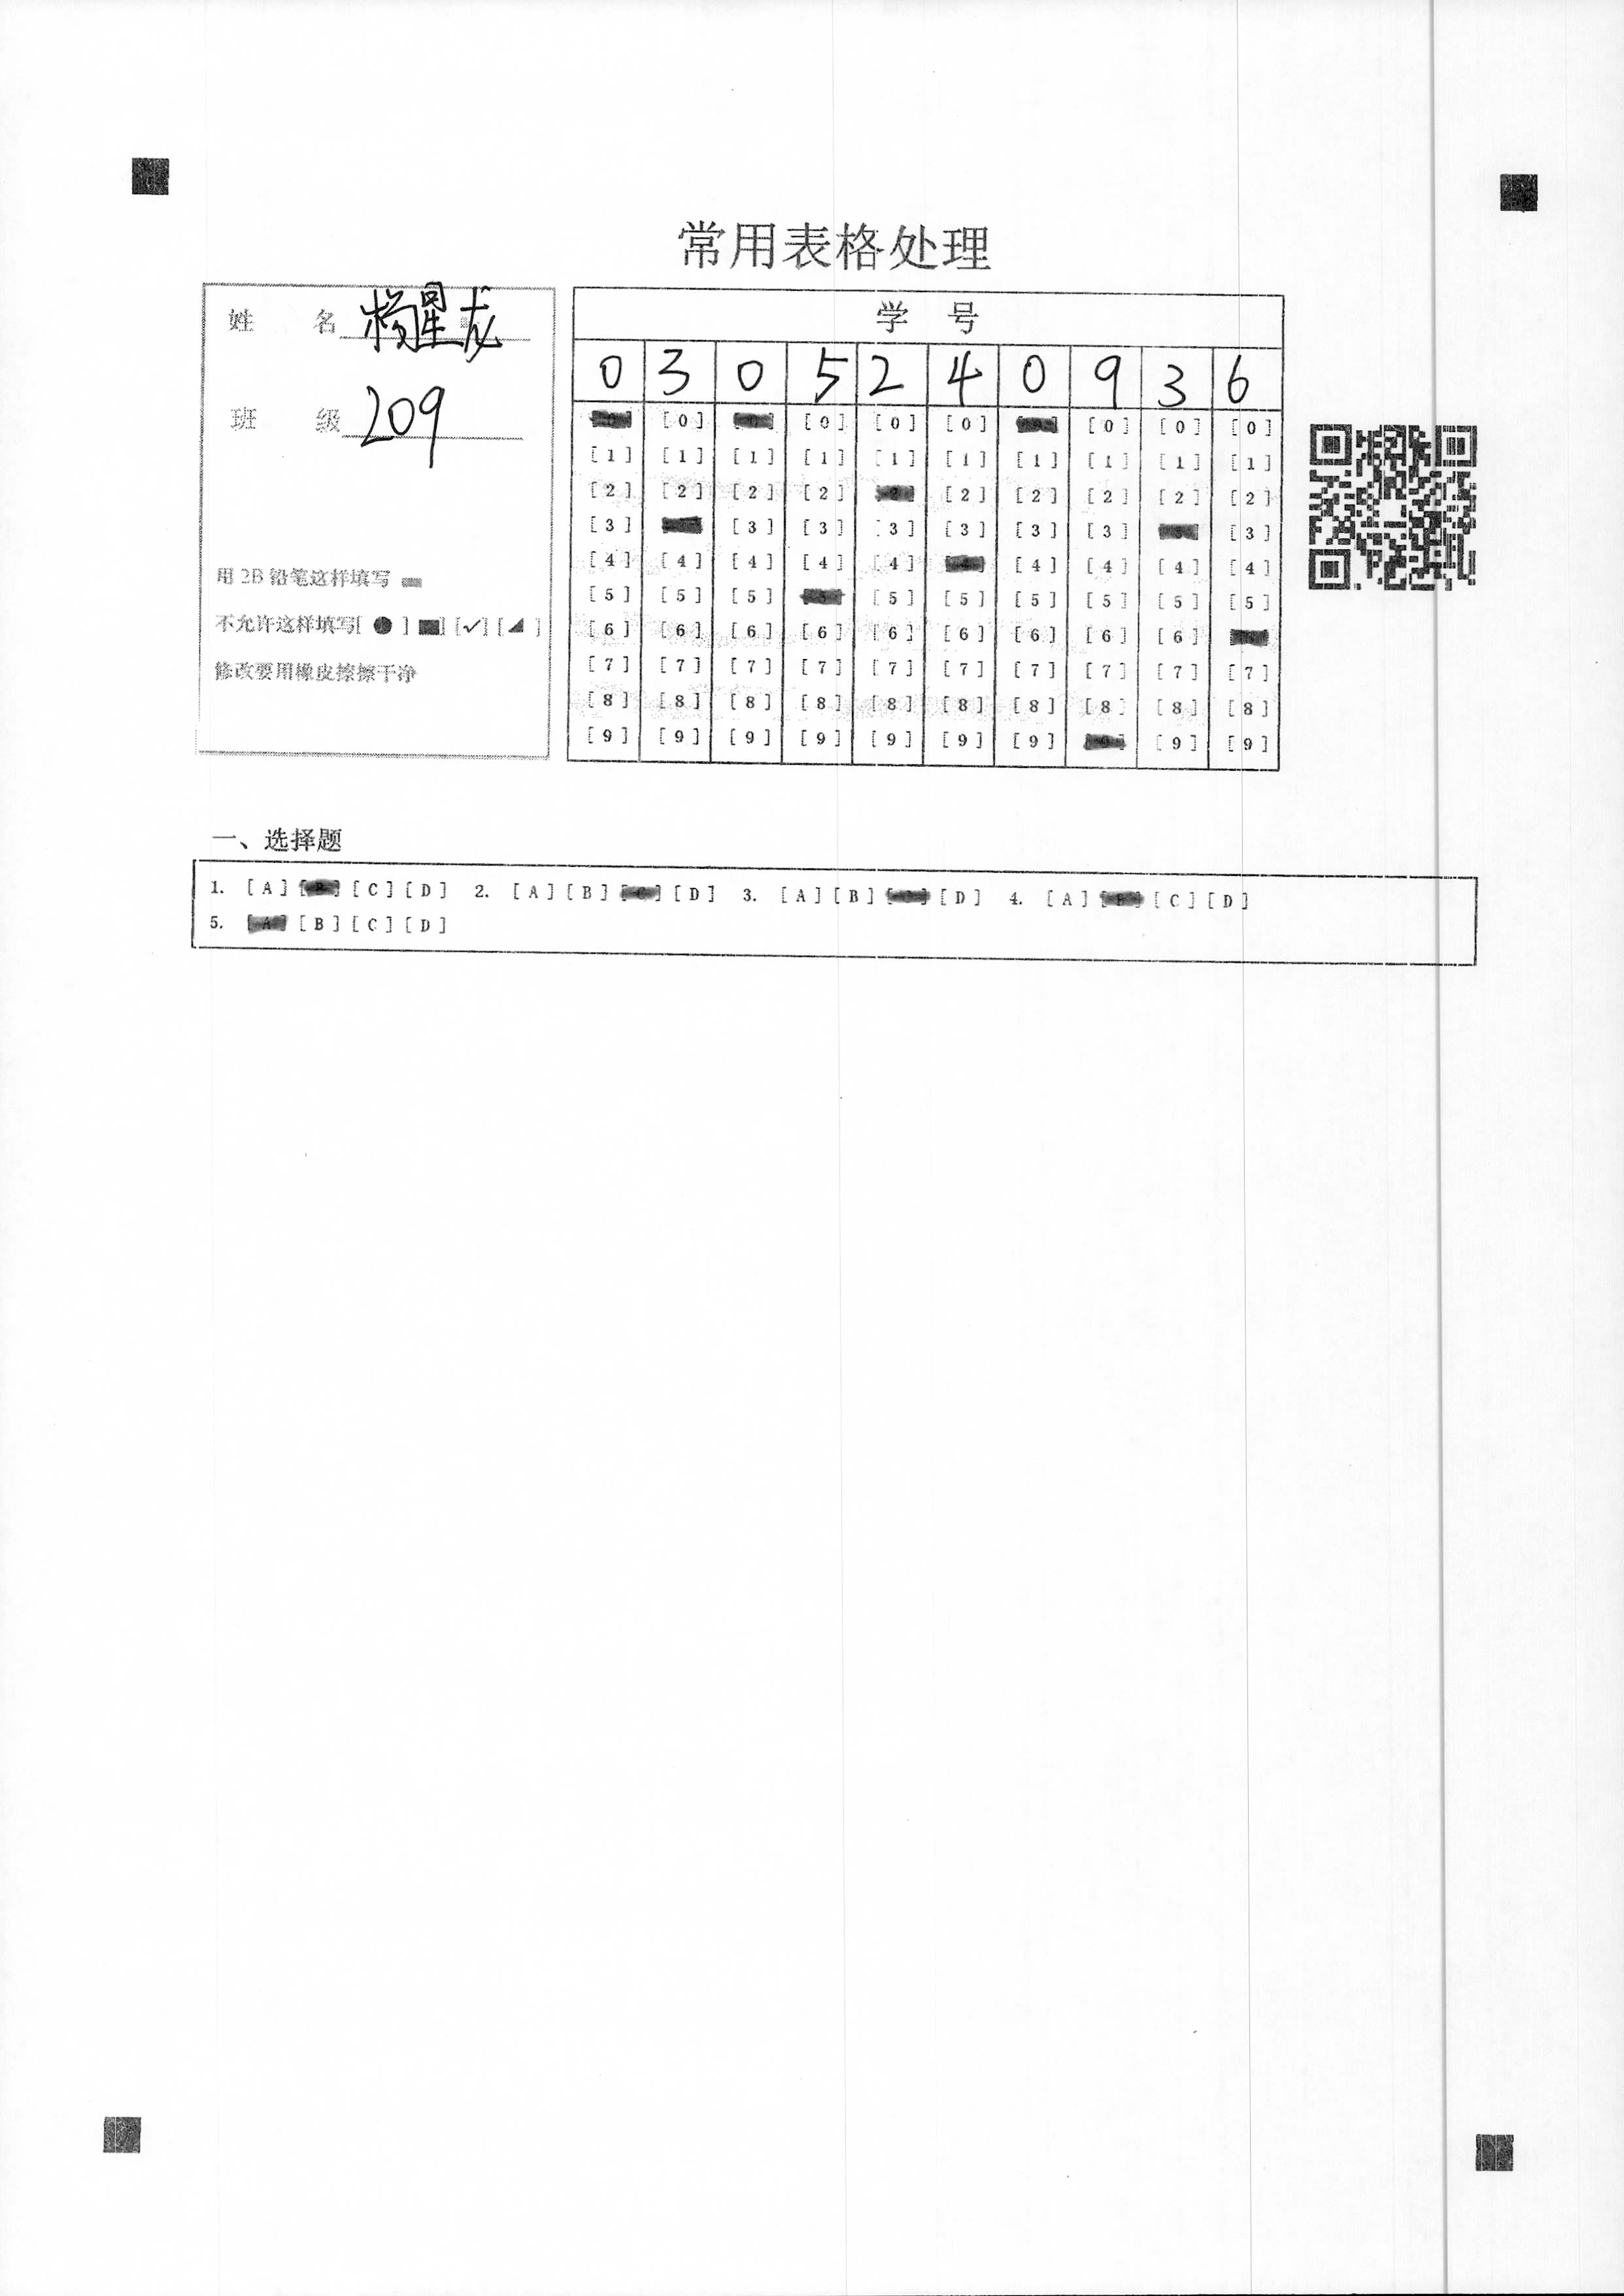 常用表格处理
姓 名 杨星龙
班 级 209
用 2B 铅笔这样填写
不允许这样填写[ ● ] [■] [✓] [◢ ]
修改要用橡皮擦擦干净
学 号
0 3 0 5 2 4 0 9 3 6
[0] [0] [0] [0] [0] [0] [0]
[1] [1] [1] [1] [1] [1] [1] [1] [1] [1]
[2] [2] [2] [2] [2] [2] [2] [2] [2]
[3] [3] [3] [3] [3] [3] [3] [3]
[4] [4] [4] [4] [4] [4] [4] [4] [4]
[5] [5] [5] [5] [5] [5] [5] [5] [5]
[6] [6] [6] [6] [6] [6] [6] [6] [6]
[7] [7] [7] [7] [7] [7] [7] [7] [7] [7]
[8] [8] [8] [8] [8] [8] [8] [8] [8] [8]
[9] [9] [9] [9] [9] [9] [9] [9] [9]
一、选择题
1. [A] [B] [C] [D] 2. [A] [B] [C] [D] 3. [A] [B] [C] [D] 4. [A] [B] [C] [D]
5. [A] [B] [C] [D]